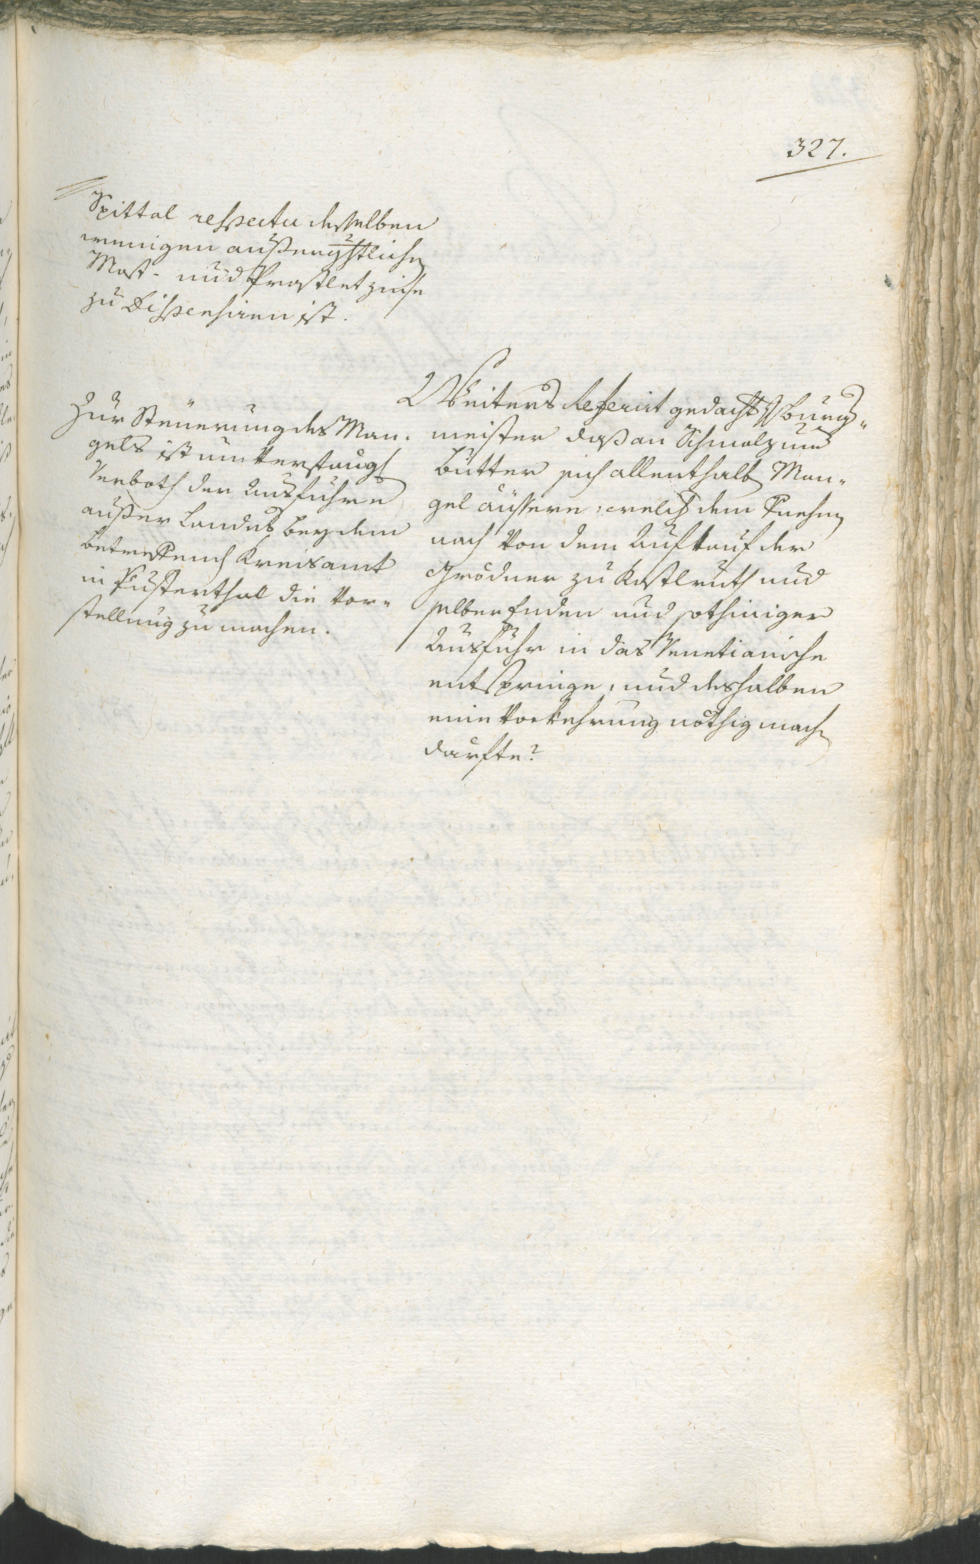 327.
Spittal respectu desselben
wenigen außeräztlichen
Most- und Prastlet zinse
zu dispensiren ist.
Zur Steuerung des Man-
gels ist um
Verboth der Ausfuhre
außer Landes bey dem
betreffend Kreisamt
in Pusterthal die Vor-
stellung zu machen.
Weiters Referirt gedacht H Burger-
meister daß an Schmalz und
Butter sich allenthalb Man-
gel äussere, welches dem
nach von dem Aufkauf der
Grödner zu Kastlruth und
selber Enden und sothiniger
Ausfuhr in das Venetianische
entspringe, und deshalben
eine Vorkehrung nöthig mach
därfte?